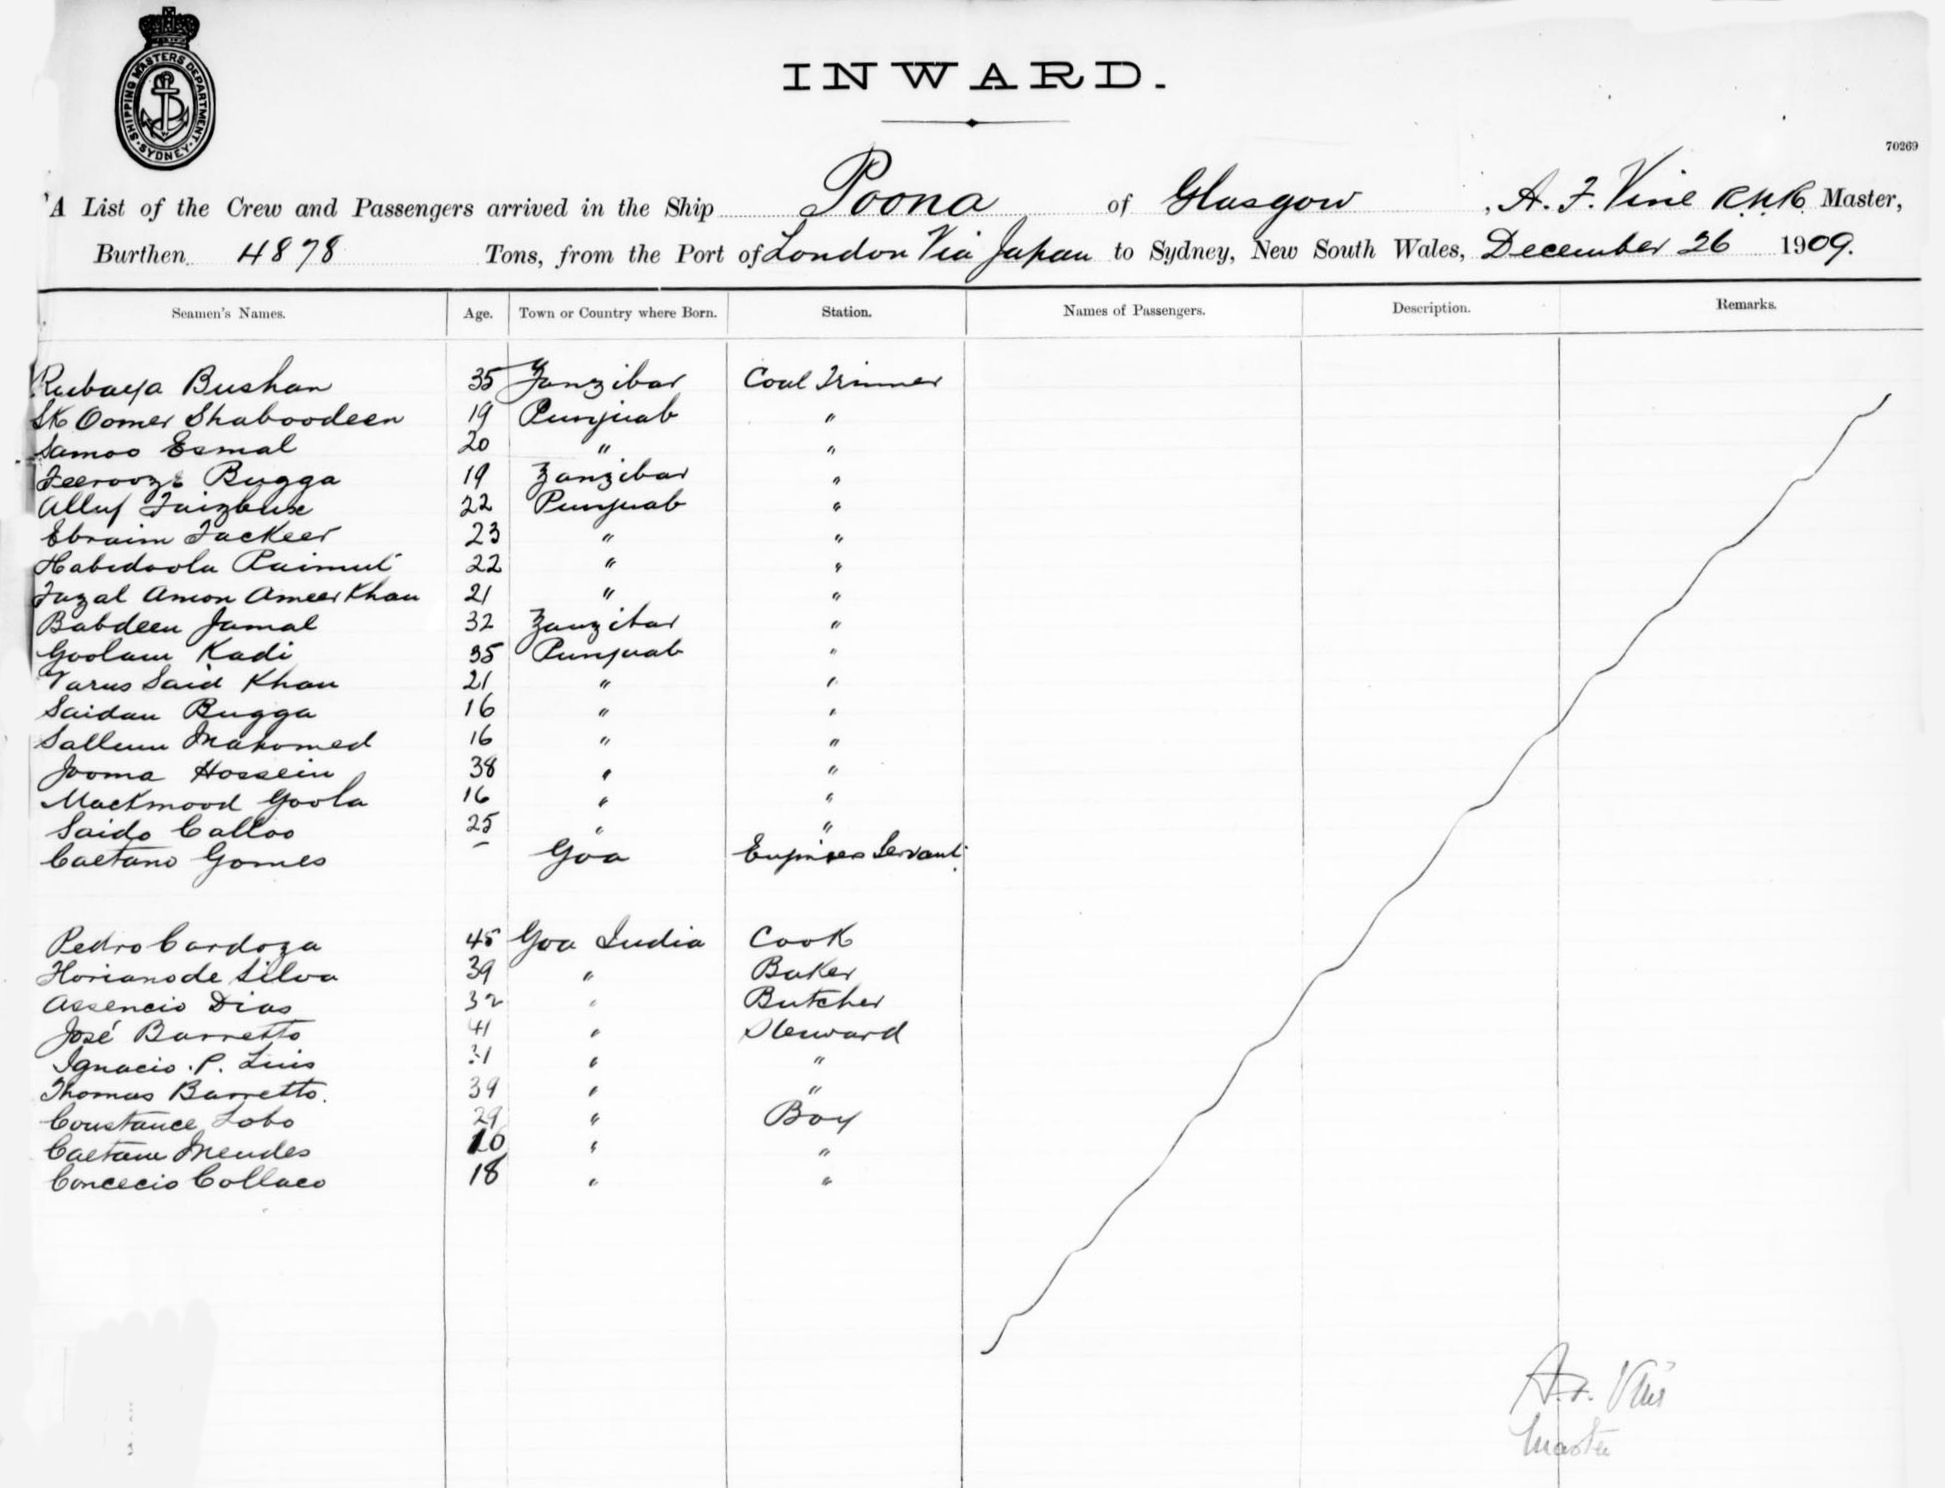 SHIPPING MASTERS DEPARTMENT. SYDNEY
INWARD.
70269
A List of the Crew and Passengers arrived in the Ship Poona of Glasgow, A. F. Vine R.N.R. Master,
Burthen 4878 Tons, from the Port of London Via Japan to Sydney, New South Wales, December 26 1909.
Seamen's Names. Age. Town or Country where Born. Station. Names of Passengers. Description. Remarks.
Rubaya Bushan 35 Zanzibar Coal Trimmer
Sk Oomer Shaboodeen 19 Punjuab "
Samoo Esmal 20 " "
Feerooze Bugga 19 Zanzibar "
Alluf Faizbux 22 Punjuab "
Ebraim Fackeer 23 " "
Habedoola Raimut 22 " "
Fazal Amon Ameer Khan 21 " "
Babdeen Jamal 32 Zanzibar "
Goolam Kadi 35 Punjuab "
Varus Said Khan 21 " "
Saidau Bugga 16 " "
Sallum Mahomed 16 " "
Jooma Hossein 38 " "
Mackmood Goola 16 " "
Saido Calloo 25 " "
Caetano Gomes - Goa Engineers Servant.
Pedro Cardoza 45 Goa India Cook
Floriano de Silva 39 " Baker
Assencio Dias 32 " Butcher
José Barretto 41 " Steward
Ignacio. P. Luis 31 " "
Thomas Barretto. 39 " "
Constance Lobo 29 " Boy
Caetano Mendes " "
Concecio Collaco 18 " "
A. F. Vine
Master